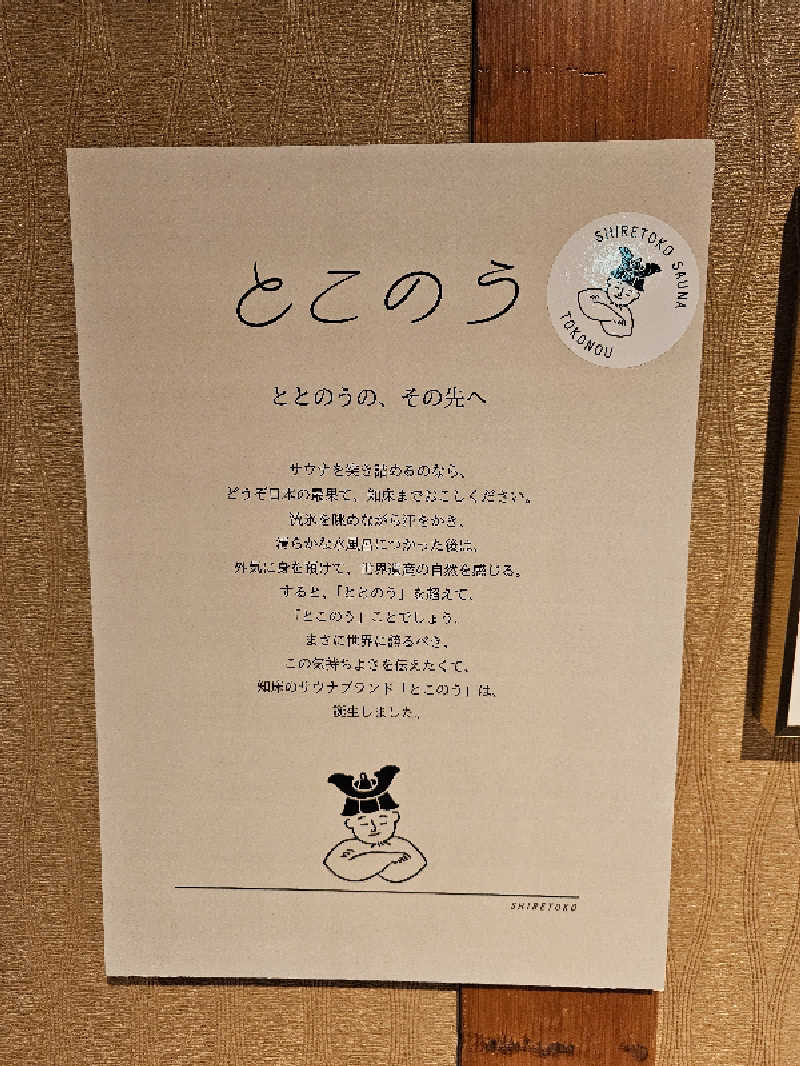 とこのう
SHIRETOKO SAUNA
TOKONOU
ととのうの、その先へ
サウナを突き詰めるのなら、
どうぞ日本の最果て、知床までおこしください。
流氷を眺めながら汗をかき、
清らかな水風呂につかった後は、
外気に身を預けて、世界遺産の自然を感じる。
すると、「ととのう」を超えて、
「とこのう」ことでしょう。
まさに世界に誇るべき、
この気持ちよさを伝えたくて、
知床のサウナブランド「とこのう」は、
誕生しました。
SHIRETOKO